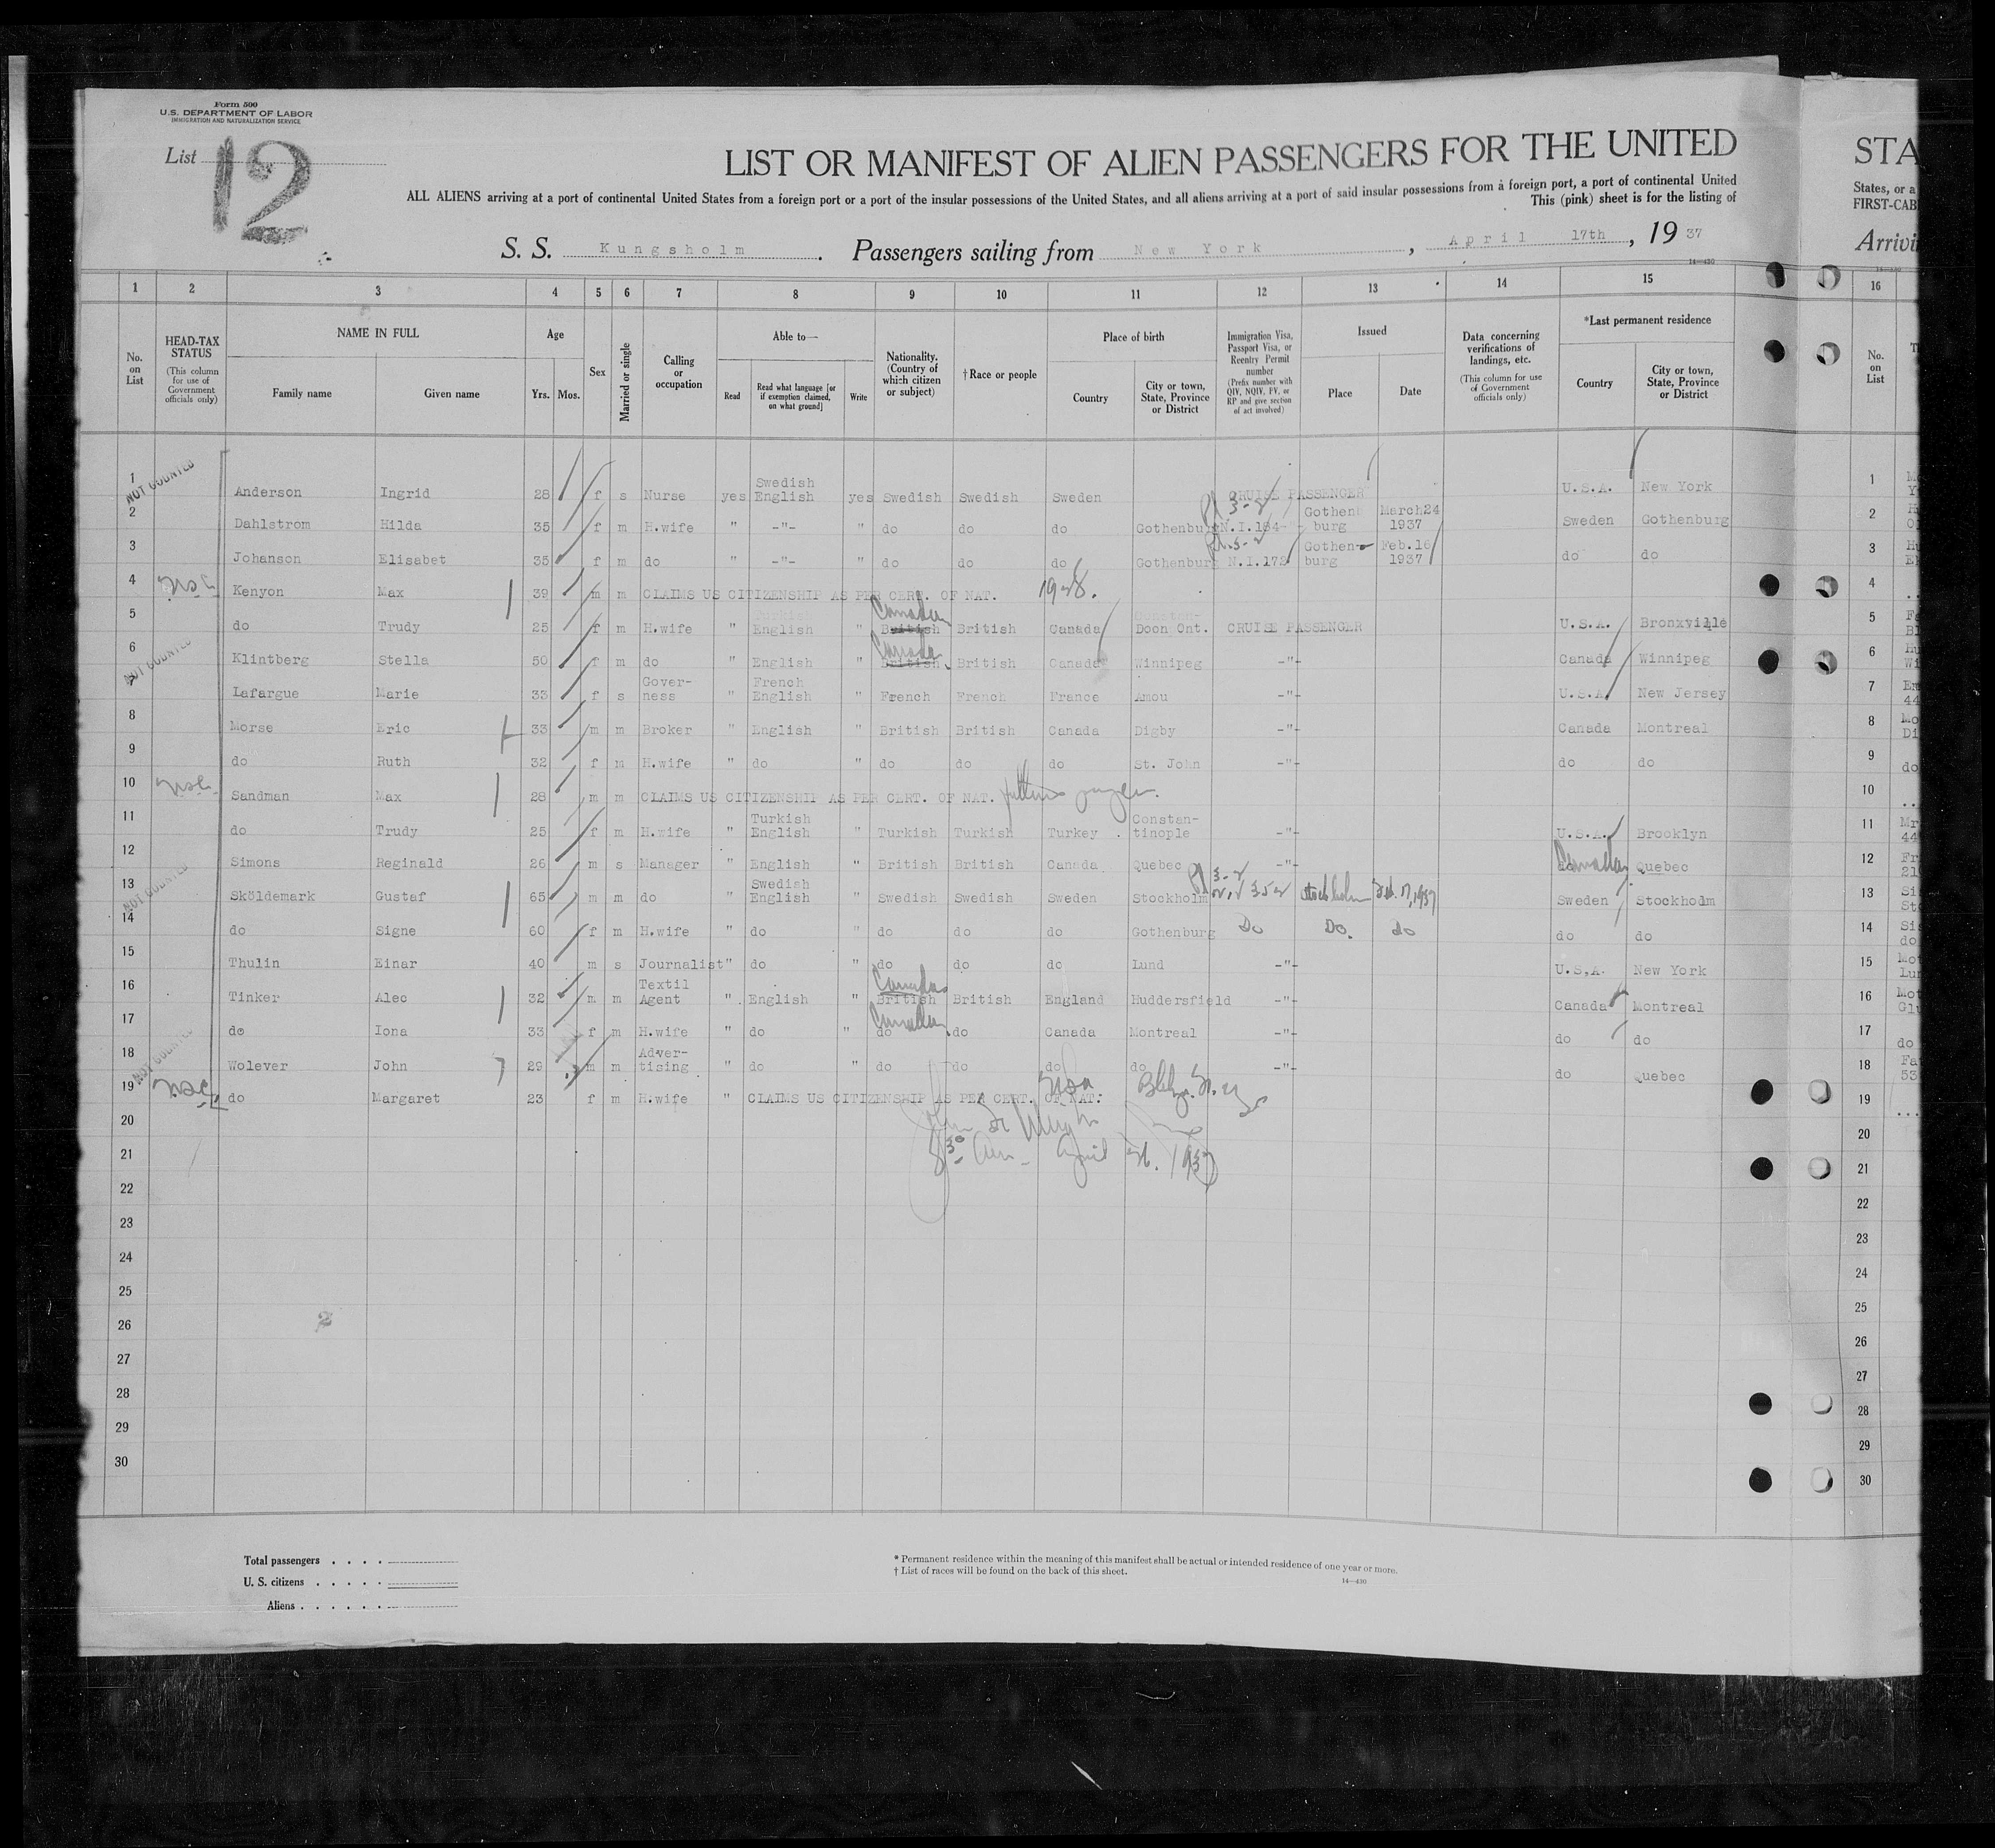 Form 500
U.S. DEPARTMENT OF LABOR
IMMIGRATION AND NATURALIZATION SERVICE
List 12
LIST OR MANIFEST OF ALIEN PASSENGERS FOR THE UNITED
STA
ALL ALIENS arriving at a port of continental United States from a foreign port or a port of the insular possessions of the United States, and all aliens arriving at a port of said insular possessions from a foreign port, a port of continental United
States, or a
This (pink) sheet is for the listing of
FIRST-CAB
S. S. Kungsholm. Passengers sailing from New York, April 17th, 19 37
Arrivi
14—430
1 2 3 4 5 6 7 8 9 10 11 12 13 14 15 16
No. on List
HEAD-TAX STATUS (This column for use of Government officials only)
NAME IN FULL
Family name Given name
Age
Yrs. Mos.
Sex
Married or single
Calling or occupation
Able to—
Read Read what language [or if exemption claimed, on what ground] Write
Nationality. (Country of which citizen or subject)
†Race or people
Place of birth
Country City or town, State, Province or District
Immigration Visa, Passport Visa, or Reentry Permit number (Prefix number with QIV, NQIV, PV, or RP and give section of act involved)
Issued
Place Date
Data concerning verifications of landings, etc. (This column for use of Government officials only)
*Last permanent residence
Country City or town, State, Province or District
No. on List
1 NOT COUNTED Anderson Ingrid 28 f s Nurse yes Swedish English yes Swedish Swedish Sweden CRUISE PASSENGER U.S.A. New York 1
2 Dahlstrom Hilda 35 f m H.wife " -"- " do do do Gothenburg 3-2 N.I.184 Gothenburg March24 1937 Sweden Gothenburg 2
3 Johanson Elisabet 35 f m do " -"- " do do do Gothenburg 3-2 N.I.172 Gothen-burg Feb.16 1937 do do 3
4 Kenyon Max 39 m m CLAIMS US CITIZENSHIP AS PER CERT. OF NAT. 1928. 4
5 do Trudy 25 f m H.wife " English " Canada British British Canada Doon Ont. CRUISE PASSENGER U.S.A. Bronxville 5
6 NOT COUNTED Klintberg Stella 50 f m do " English " Canada British British Canada Winnipeg -"- Canada Winnipeg 6
7 Lafargue Marie 33 f s Gover-ness " French English " French French France Amou -"- U.S.A. New Jersey 7
8 Morse Eric 33 m m Broker " English " British British Canada Digby -"- Canada Montreal 8
9 do Ruth 32 f m H.wife " do " do do do St. John -"- do do 9
10 Sandman Max 28 m m CLAIMS US CITIZENSHIP AS PER CERT. OF NAT. 10
11 do Trudy 25 f m H.wife " Turkish English " Turkish Turkish Turkey Constan-tinople -"- U.S.A. Brooklyn 11
12 Simons Reginald 26 m s Manager " English " British British Canada Quebec -"- Canada Quebec 12
13 NOT COUNTED Sköldemark Gustaf 65 m m do " Swedish English " Swedish Swedish Sweden Stockholm 3-2 352 Stockholm Feb. 17, 1937 Sweden Stockholm 13
14 do Signe 60 f m H.wife " do " do do do Gothenburg Do Do. do do do 14
15 Thulin Einar 40 m s Journalist " do " do do do Lund -"- U.S.A. New York 15
16 Tinker Alec 32 m m Textil Agent " English " Canada British British England Huddersfield -"- Canada Montreal 16
17 do Iona 33 f m H.wife " do " Canada do do Canada Montreal -"- do do 17
18 NOT COUNTED Wolever John 29 m m Adver-tising " do " do do do do -"- do Quebec 18
19 do Margaret 23 f m H.wife " CLAIMS US CITIZENSHIP AS PER CERT. OF NAT. 19
20 20
21 April 1937 21
22 22
23 23
24 24
25 25
26 26
27 27
28 28
29 29
30 30
Total passengers . . . .
U. S. citizens . . . . .
Aliens . . . . . .
* Permanent residence within the meaning of this manifest shall be actual or intended residence of one year or more.
† List of races will be found on the back of this sheet.
14—430